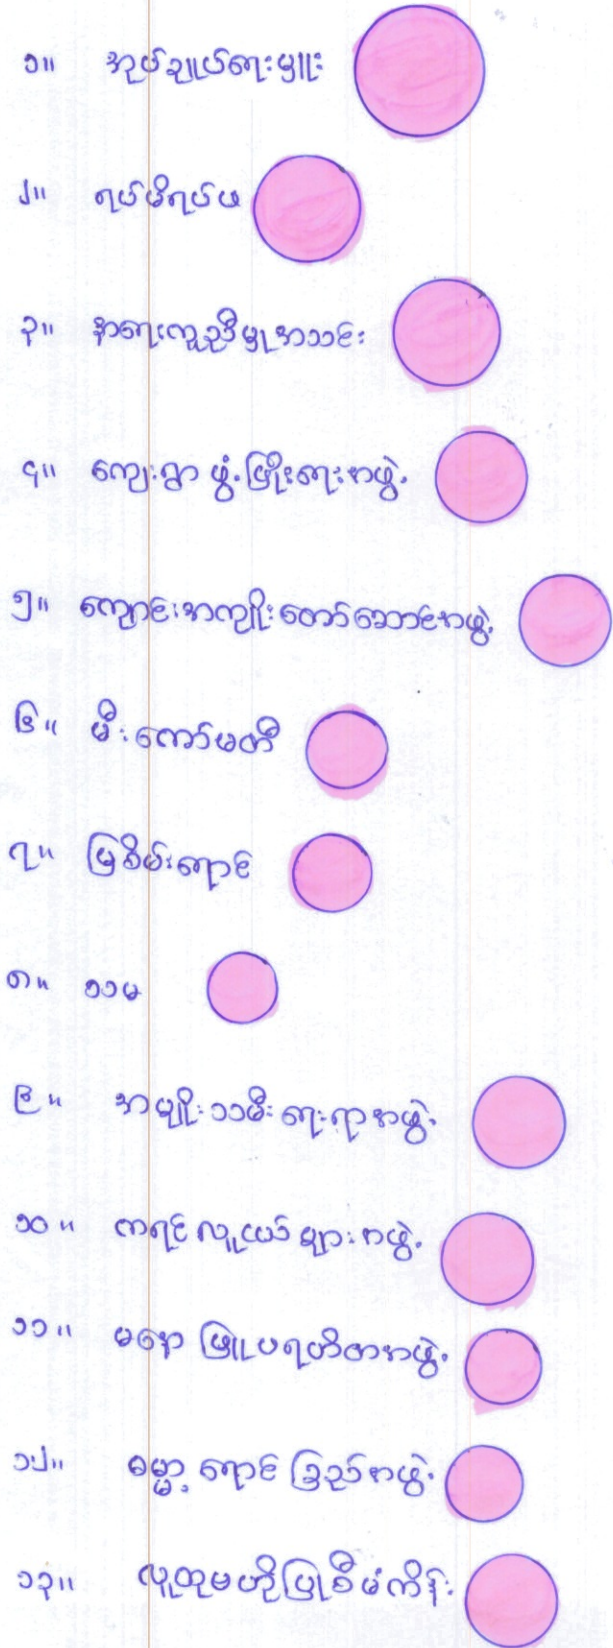 ၁။ အုပ်ချုပ်ရေးမှူး
၂။ ရပ်မိရပ်ဖ
၃။ အရေးကူညီမှုအသင်း
၄။ ကျေးရွာ ဖွံ့ဖြိုးရေးအဖွဲ့
၅။ ကျောင်းအကျိုးတော်ဆောင်အဖွဲ့
၆။ မီးကော်မတီ
၇။ မြစိမ်းရောင်
၈။ သသမ
၉။ အမျိုးသမီးရေးရာအဖွဲ့
၁၀။ ကရင်လူငယ်များအဖွဲ့
၁၁။ မနောဖြူပရဟိတအဖွဲ့
၁၂။ ဓမ္မာ့ရောင်ခြည်အဖွဲ့
၁၃။ လူထုဗဟိုပြုစီမံကိန်း